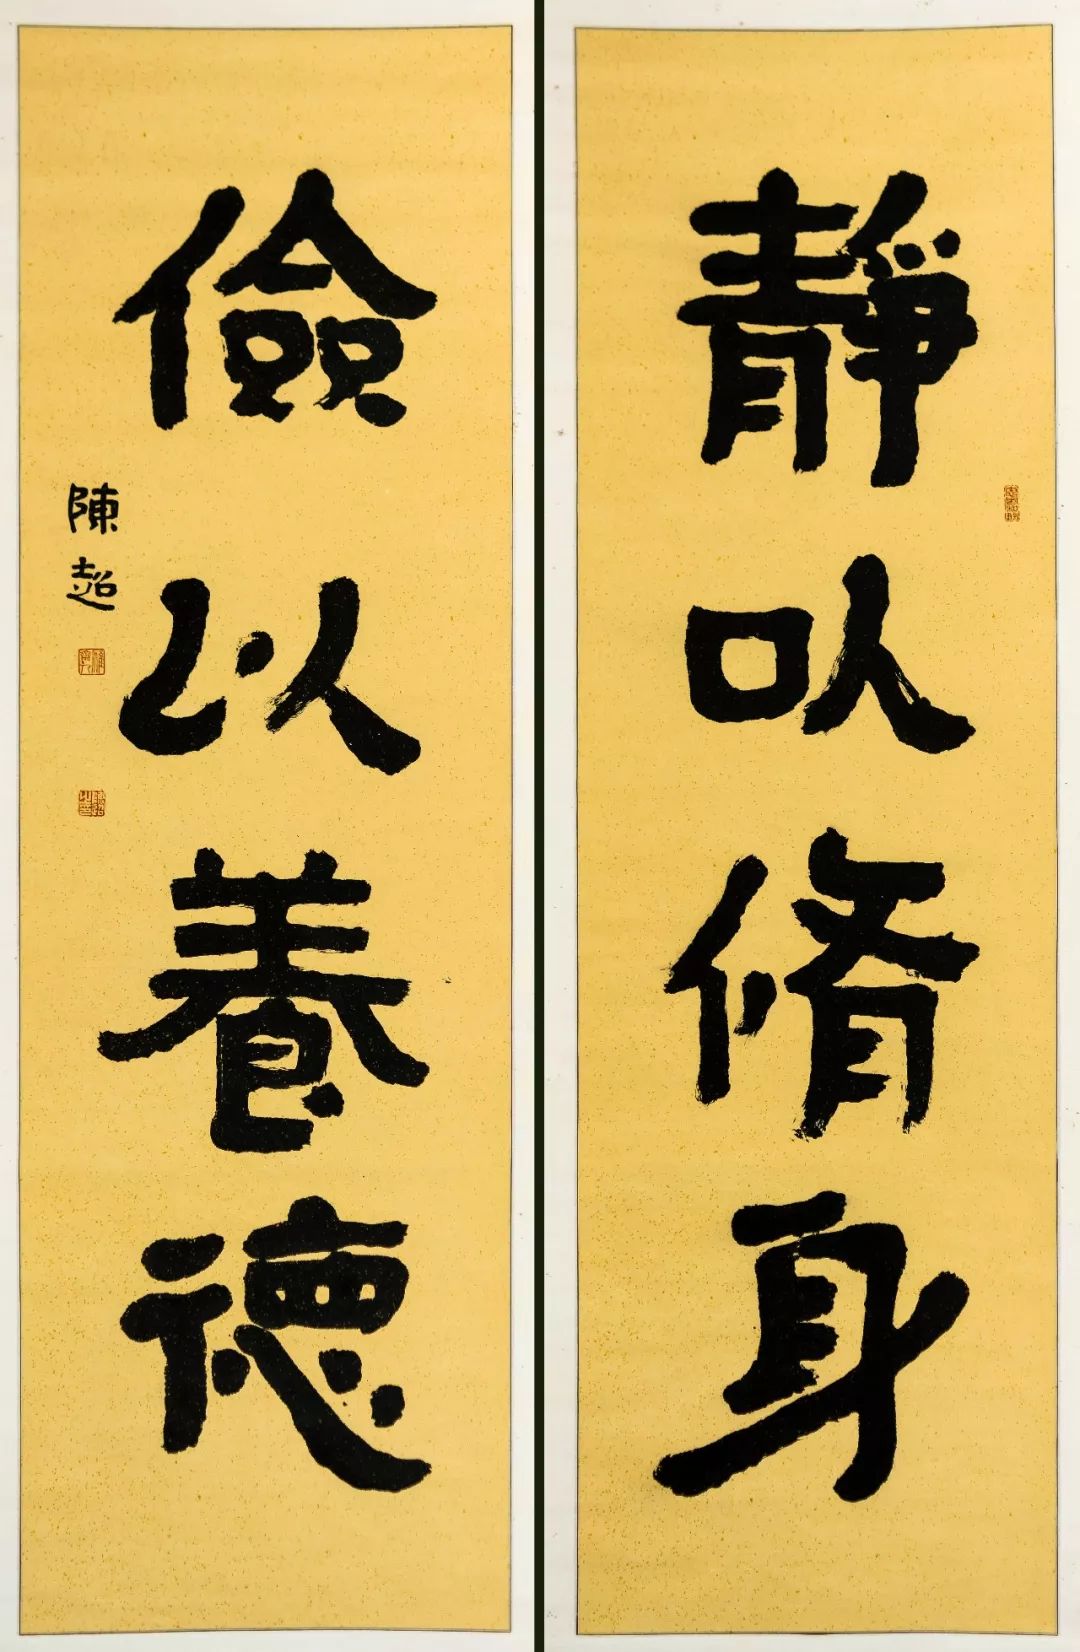 靜以脩身
儉以養德
陳超